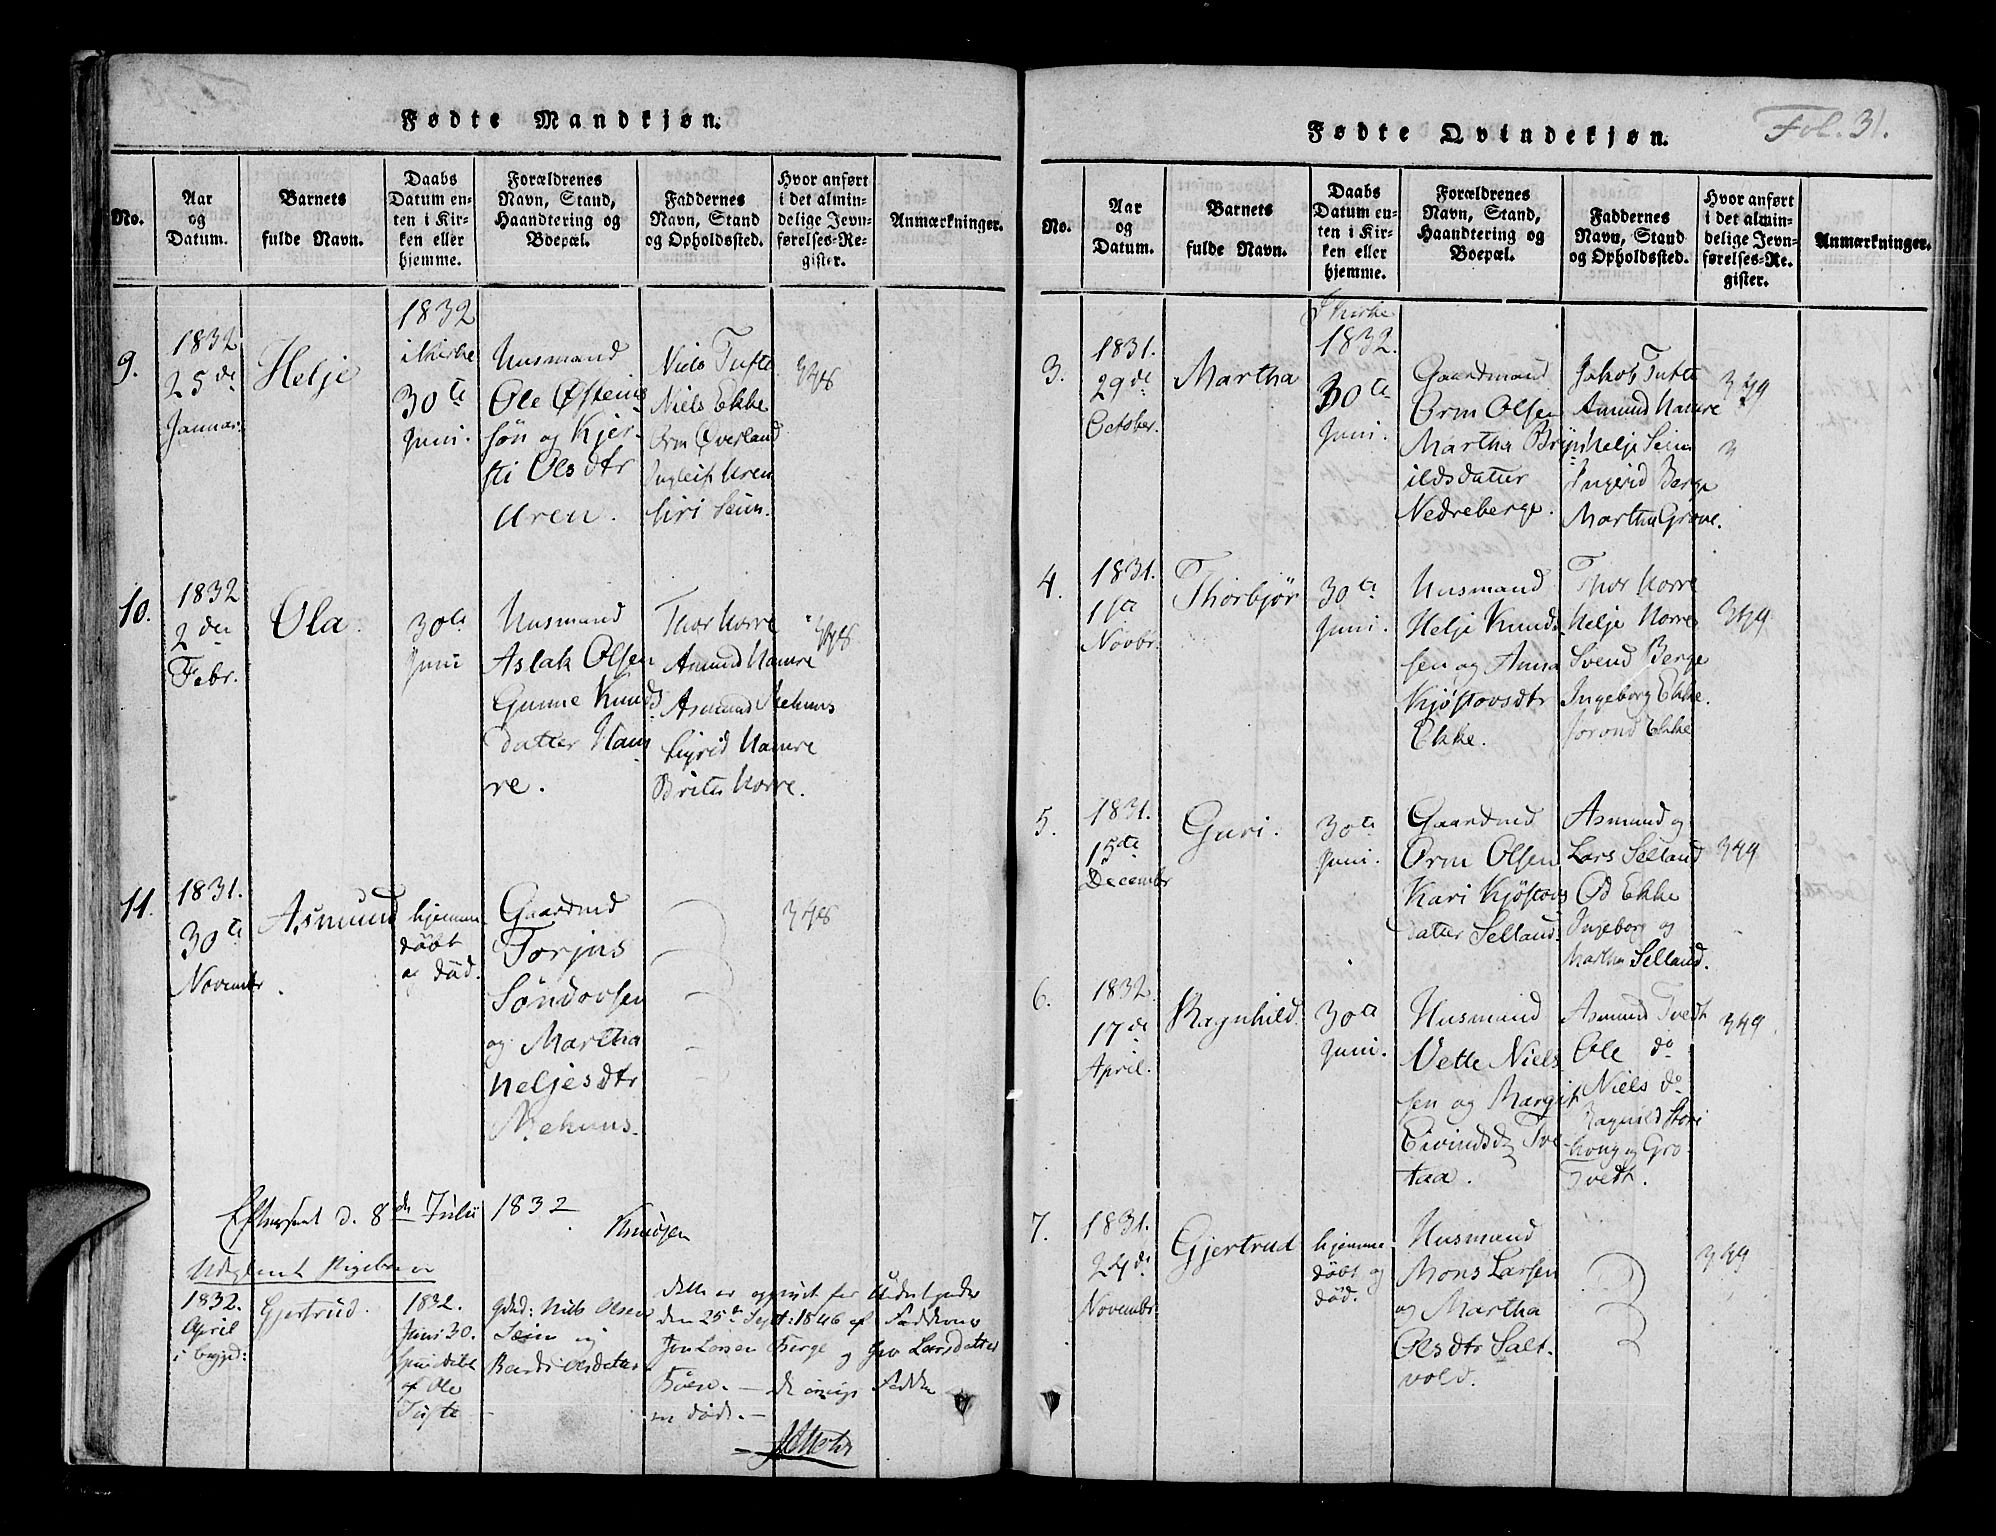 Fødte Mandkjøn.
No.
Aar
og
Datum.
Barnets
fulde Navn.
Daabs
Datum en-
ten i Kir-
ken eller
hjemme.
Forældrenes
Navn, Stand,
Haandtering og
Boepæl.
Faddernes
Navn, Stand
og Opholdssted.
Hvor anført
i det almin-
delige Jevn-
førelses-Re-
gister.
Anmærkninger.
9.
1832
25de
Januar.
Helje
1832
i Kirke
30te
Juni.
Husmand
Ole Østens
søn og Kjer-
sti Olsdtr
Uren.
Niels Tufte
Niels Ekke
Orm Øverland
Ingleif Uren
Siri Seim.
348
10.
1832
2den
Febr.
Ola.
30te
Juni
Husmand
Aslak Olsen
Gunne Knuds
datter Ham
re.
Thor Norre
Amund Hamre
Asmund Mehuus
Sigrid Hamre
Brite Norre.
348
11.
1831.
30te
Novembr
Asmund
hjemme
døbt
og død.
Gaardmd
Torjus
Søndovsen
og Martha
Heljesdtr
Mehuus.
348
Efterseet d. 8de Julii 1832
Knudsen
Udglemt Pigebarn
1832.
April
Gjertrud.
1832.
Juni 30.
af Ole
Tufte
Gdbd: Niels Olsen
Seim og
Olsdatter
Dette er opgivet for Undertegnede
den 25de Sept: 1846 af Fadderne
Jon Larsen Berge og Gro Larsdatter
— De øvrige Faddre
er døde. —
Fødte Qvindekjøn.
Fol. 31.
No.
Aar
og
Datum.
Barnets
fulde Navn.
Daabs
Datum en-
ten i Kir-
ken eller
hjemme.
Forældrenes
Navn, Stand,
Haandtering og
Boepæl.
Faddernes
Navn, Stand
og Opholdssted.
Hvor anført
i det almin-
delige Jevn-
førelses-Re-
gister.
Anmærkninger.
3.
1831.
29de
October.
Martha
I Kirke
1832.
30te
Juni.
Gaardmand
Orm Olsen
Martha Bryn
ildsdatter
Nedreberge.
Jakob Tufte
Amund Hamre
Helje Seim
Ingerid Berge
Martha Grove.
349
4.
1831.
1ste
Novbr.
Thorbjør
30te
Juni.
Husmand
Helje Knud
sen og Anna
Kjøstovsdtr
Ekke.
Thor Norre
Helje Norre
Svend Berge
Ingeborg Ekke.
Jorond Ekke
349
5.
1831.
15de
Decembr
Guri.
30te
Juni.
Gaardmd
Orm Olsen
Kari Kjøstovs
datter Selland.
Asmund og
Lars Selland
Od Ekke
Ingeborg og
Martha Selland.
349
6.
1832.
17de
April.
Ragnhild.
30te
Juni.
Husmand
Vette Niels
sen og Margit
Eivindsd Tve
taa.
Asmund Tvedt
Ole do
Niels do
Ragnild Store
houg og Gro
Tvedt.
349
7.
1831.
24de
Novembr.
Gjertrud
hjemme
døbt og
død.
Husmand
Mons Larsen
og Martha
Olsdtr Salt-
vold.
349